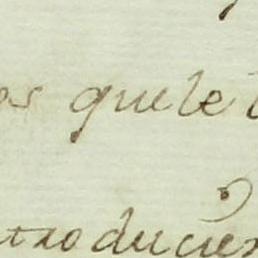 os quele
troducien